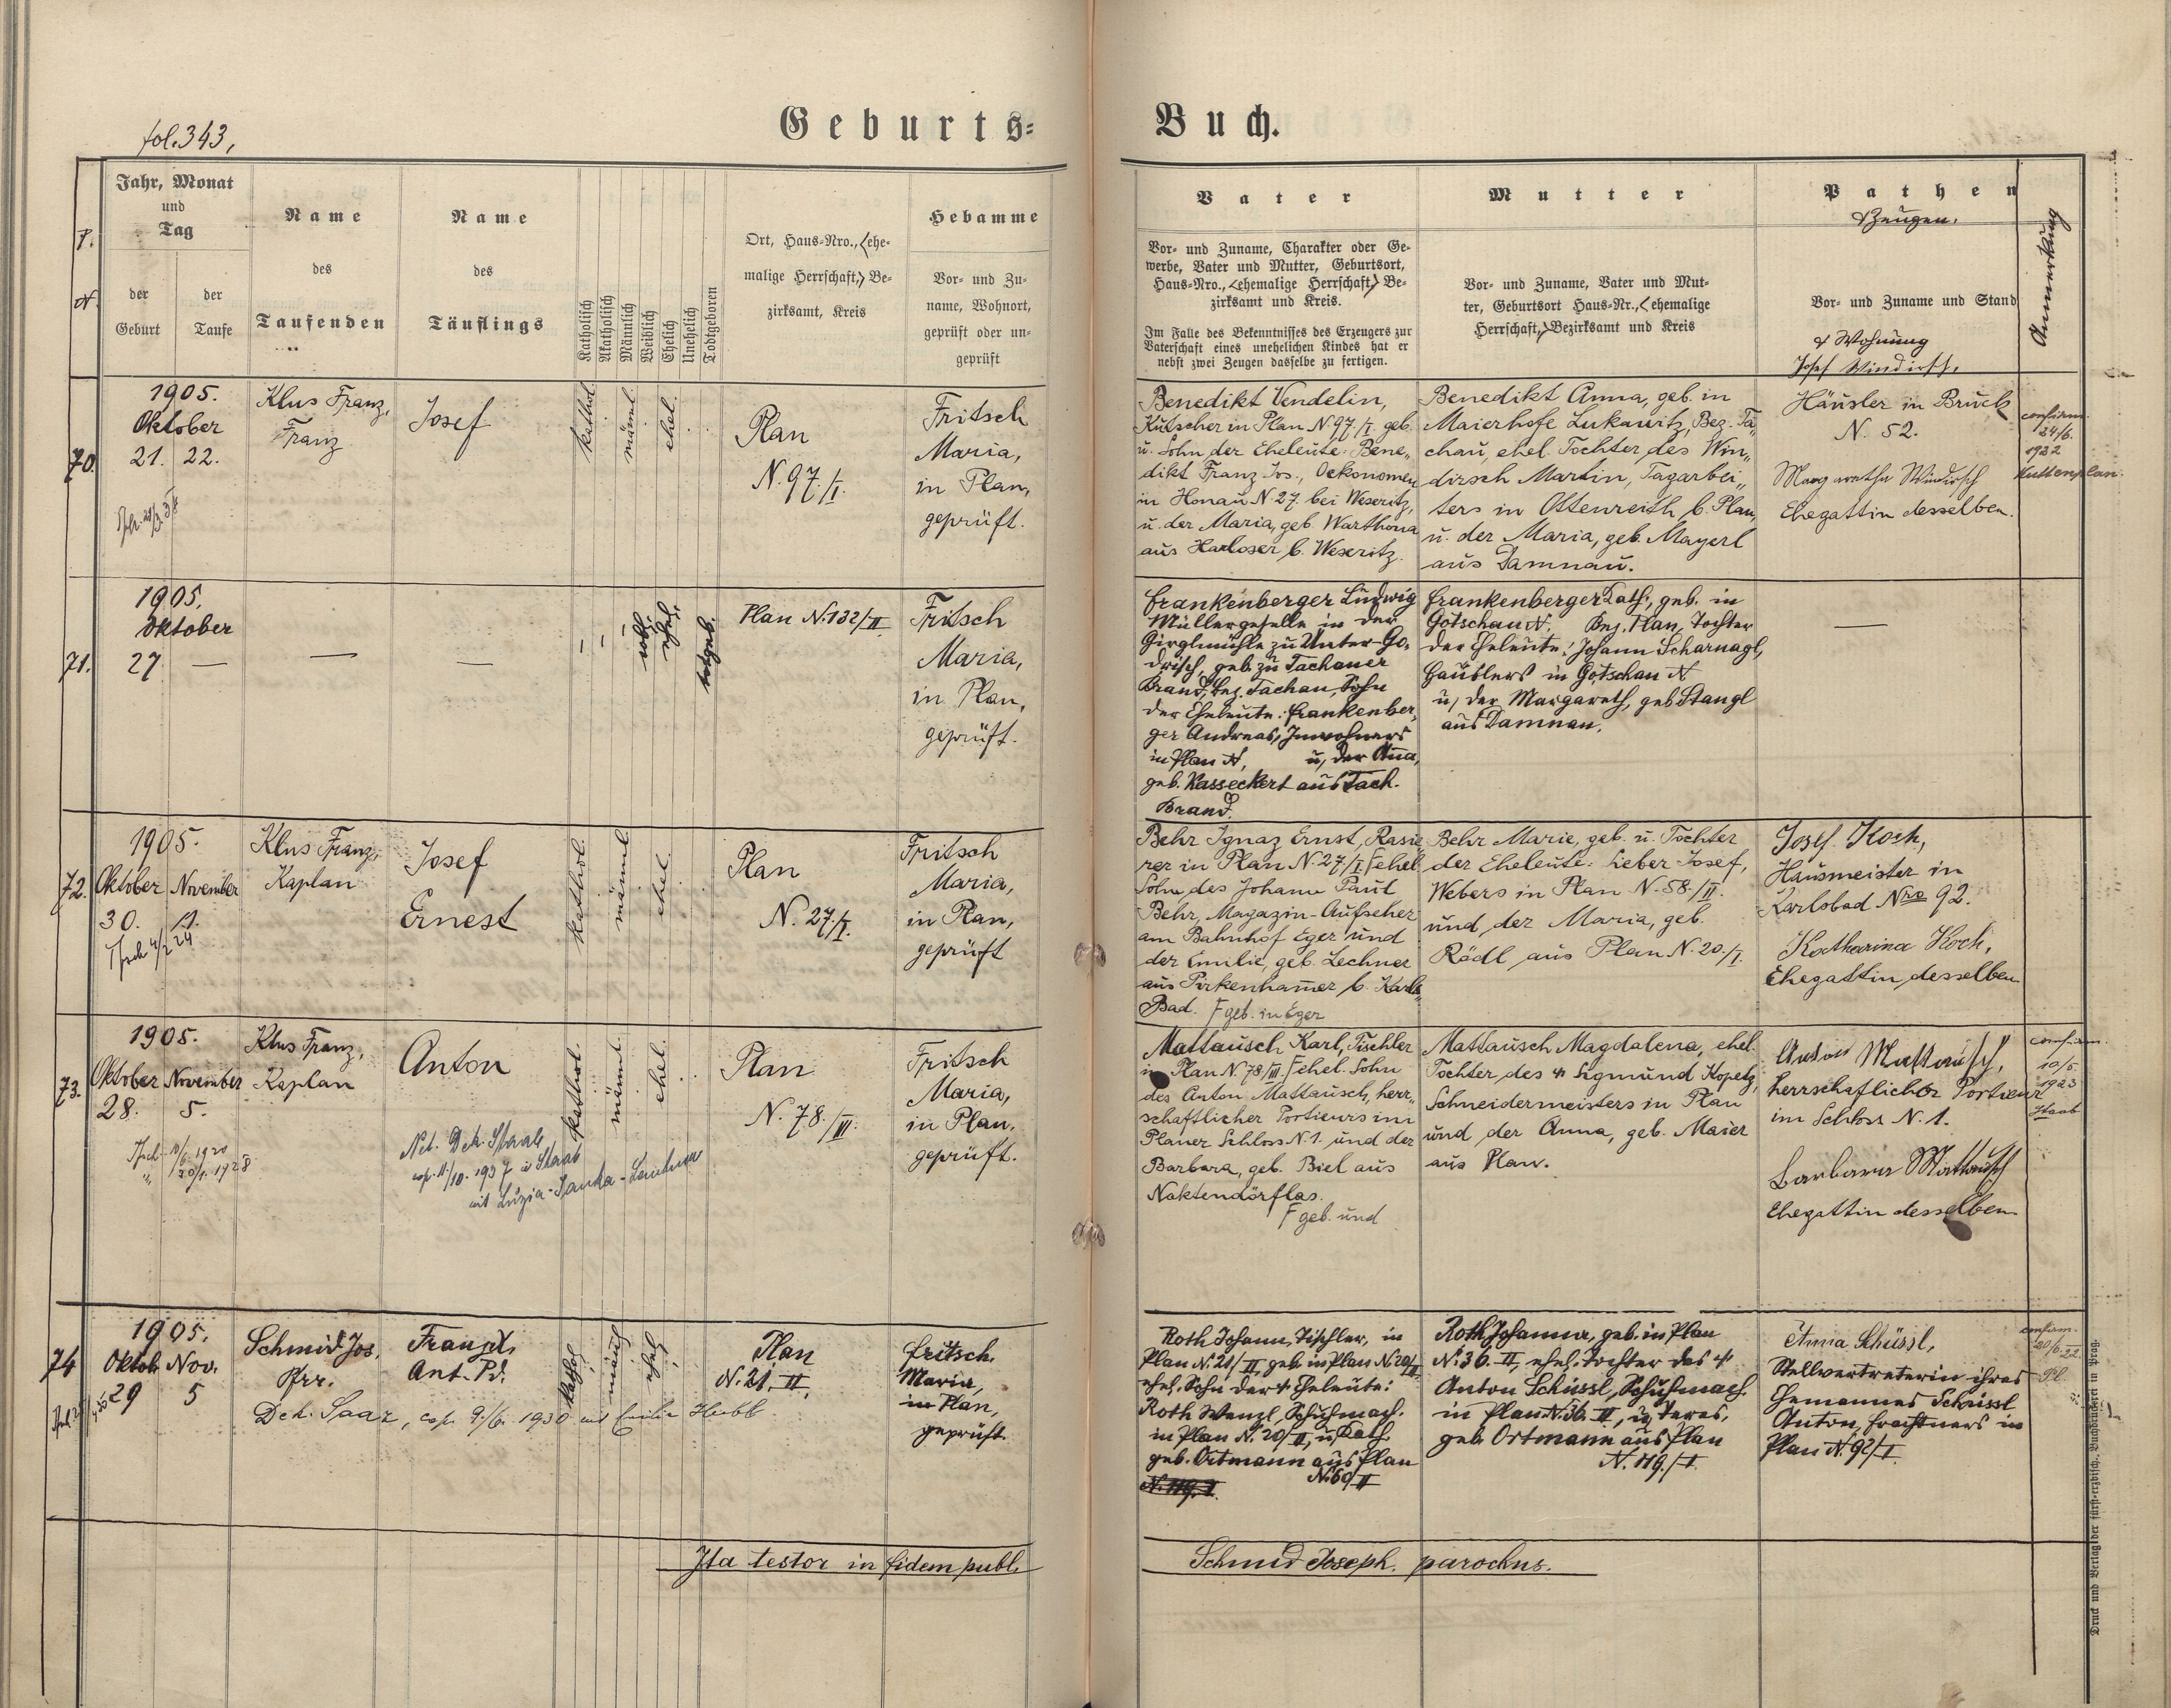 fol. 343,
Geburts-Buch.
P.
N.
Jahr, Monat
und
Tag
der
Geburt
der
Taufe
Name
des
Taufenden
Name
des
Täuflings
Katholisch
Akatholisch
Männlich
Weiblich
Ehelich
Unehelich
Todtgeboren
Ort, Haus-Nro., (ehe-
malige Herrschaft,) Be-
zirksamt, Kreis
Hebamme
Vor- und Zu-
name, Wohnort,
geprüft oder un-
geprüft
Vater
Vor- und Zuname, Charakter oder Ge-
werbe, Vater und Mutter, Geburtsort,
Haus-Nro., (ehemalige Herrschaft,) Be-
zirksamt und Kreis.
Im Falle des Bekenntnisses des Erzeugers zur
Vaterschaft eines unehelichen Kindes hat er
nebst zwei Zeugen dasselbe zu fertigen.
Mutter
Vor- und Zuname, Vater und Mut-
ter, Geburtsort Haus-Nr., (ehemalige
Herrschaft,) Bezirksamt und Kreis
Pathen
& Zeugen.
Vor- und Zuname und Stand
& Wohnung
Anmerkung
70.
1905.
Oktober
21. 22.
Klus Franz,
Franz
Josef
kathol.
männl.
ehel.
Plan
N. 97./I.
Fritsch
Maria,
in Plan,
geprüft.
Benedikt Vendelin,
Kutscher in Plan N 97./I. geb.
u. Sohn der Eheleute: Bene„
dikt Franz Jos., Oekonomen
in Honau N 27. bei Weseritz,
u. der Maria, geb. Warthona
aus Harloser b. Weseritz.
Benedikt Anna, geb. in
Maierhofe Lukawitz, Bez. Ta„
chau, ehel. Tochter des Win„
dirsch Martin, Tagarbei„
ters in Ottenreith b. Plan,
u. der Maria, geb. Mayerl
aus Damnau.
Josef Windirsch,
Häusler in Bruck
N. 52.
Margaretha Windirsch
Ehegattin desselben.
confirm.
24/6.
1922
Kuttenplan.
71.
1905.
Oktober
27 —
—
—
weibl.
ehel.
todtgeb.
Plan N. 132/II
Fritsch
Maria,
in Plan,
geprüft.
Frankenberger Ludwig
Müllergeselle in der
Girglmühle zu Unter-Go„
drisch, geb. zu Tachauer
Brand, Bez. Tachau, Sohn
der Eheleute: Frankenber„
ger Andreas, Inwohners
in Plan N, u, der Anna,
geb. Kasseckert aus Tach.
Brand.
Frankenberger Kath., geb. in
Gotschau N. Bez. Plan, Tochter
der Eheleute: Johann Scharnagl,
Häuslers in Gotschau N
u, der Margareth, geb Stangl
aus Damnau.
—
72.
1905.
Oktober November
30. 11.
Klus Franz,
Kaplan
Josef
Ernest
kathol.
männl.
ehel.
Plan
N. 27./I.
Fritsch
Maria,
in Plan,
geprüft
Behr Ignaz Ernst, Rasie
rer in Plan N 27/I. F ehel.
Sohn des Johann Paul
Behr, Magazin-Aufseher
am Bahnhof Eger und
der Emilie, geb. Lechner
aus Pirkenhammer b. Karls„
Bad. F geb. in Eger
Behr Marie, geb. u. Tochter
der Eheleute: Lieber Josef,
Webers in Plan N. 58./II.
und der Maria, geb.
Rödl aus Plan N. 20./I.
Josef Koch,
Hausmeister in
Karlsbad Nro 92.
Katharina Koch,
Ehegattin desselben
73.
1905.
Oktober November
28. 5.
Klus Franz,
Kaplan
Anton
kathol.
männl.
ehel.
Plan
N. 78./III.
Fritsch
Maria,
in Plan,
geprüft.
cop. 11/10. 1937 in Staab
Mattausch Karl, Tischler
in Plan N. 78/III. F ehel. Sohn
des Anton Mattausch, herr„
schaftlicher Portieurs im
Planer Schloss N 1. und der
Barbara, geb. Biel aus
Naktendörflas.
F geb. und
Mattausch Magdalena, ehel.
Tochter des + Sigmund Kopetz,
Schneidermeisters in Plan
und der Anna, geb. Maier
aus Plan.
Anton Mattausch,
herrschaftlicher Portieur
im Schloss N. 1.
Barbara Mattausch
Ehegattin desselben
confirm.
10/5.
1923
Staab
74
1905.
Oktob. Nov.
29 5
Schmid Jos.
Pfr.
Franz X.
Ant. Pd.
kathol.
männl.
ehel.
Plan
N. 21. II.
Fritsch
Maria,
in Plan,
geprüft.
Dek. Saaz, cop. 9./6. 1930 mit Emilie Hubl
Roth Johann, Tischler, in
Plan N. 21/II, geb. in Plan N. 20/II
ehel. Sohn der + Eheleute:
Roth Wenzl, Schuhmach.
in Plan N. 20/II, u, Kath.
geb. Ortmann aus Plan
N. 119. I. N. 60/II
Roth Johanna, geb. in Plan
N. 36. II, ehel. Tochter des +
Anton Schüssl, Schuhmach.
in Plan N. 36. II, u, Teres,
geb. Ortmann aus Plan
N. 119./I
Anna Schüssl,
Stellvertreterin ihres
Ehemannes Schüssl
Anton, Frachtners in
Plan N. 92/I
confirm.
20/6. 22
Pl.
Ita testor in fidem publ.
Schmid Joseph. parochus.
Druck und Verlag der fürst-erzbisch. Buchdruckerei in Prag.